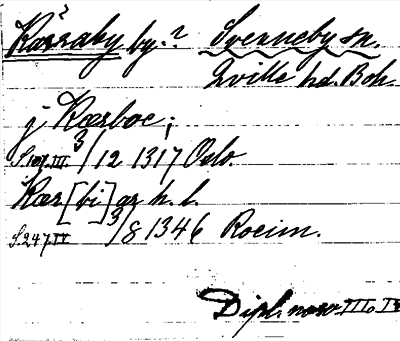 Kärraby by.? Svenneby sn.
Qville hd. Boh.
j Kærboe;
S 107. III. 3/12 1317 Oslo.
Kær[bi]ar h. l.
S. 247 IV 3/8 1346 Roeim.
Dipl. norv. III o IV